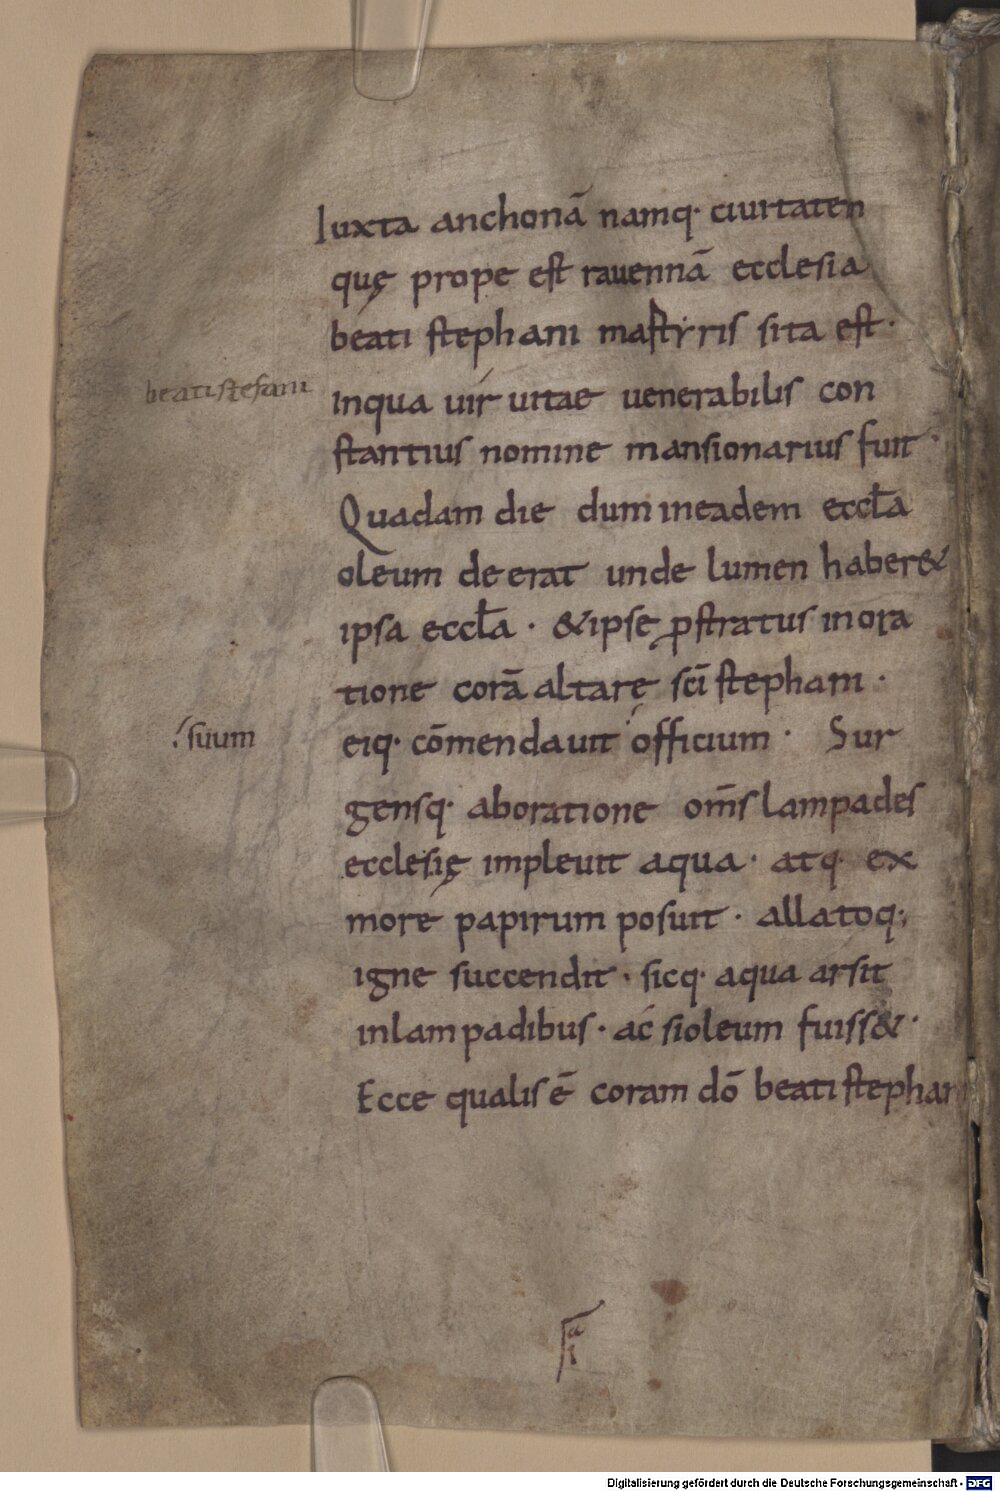 Iuxta anchonā namq· ciuitaten
quę prope est rauennā ecclesia
beati stephani mastyris sita est·
beati stefani
inqua uir uitae uenerabilis con
stantius nomine mansionarius fuit·
Quadam die dum ineadem eccła
oleum deerat unde lumen haber&
ipsa eccła · &ipsę ꝓstratus inora
tione corā altarę scī stephani ·
⁖ suum
eiq· cōmendauit officium · Sur
gensq· aboratione om̄s lampades
ecclesię impleuit aqua · atq· ex
more papirum posuit · allatoq;
igne succendit · sicq· aqua arsit
inlampadibus · ac sioleum fuiss& ·
Ecce qualis ē coram dō beati stephan
Digitalisierung gefördert durch die Deutsche Forschungsgemeinschaft - DFG